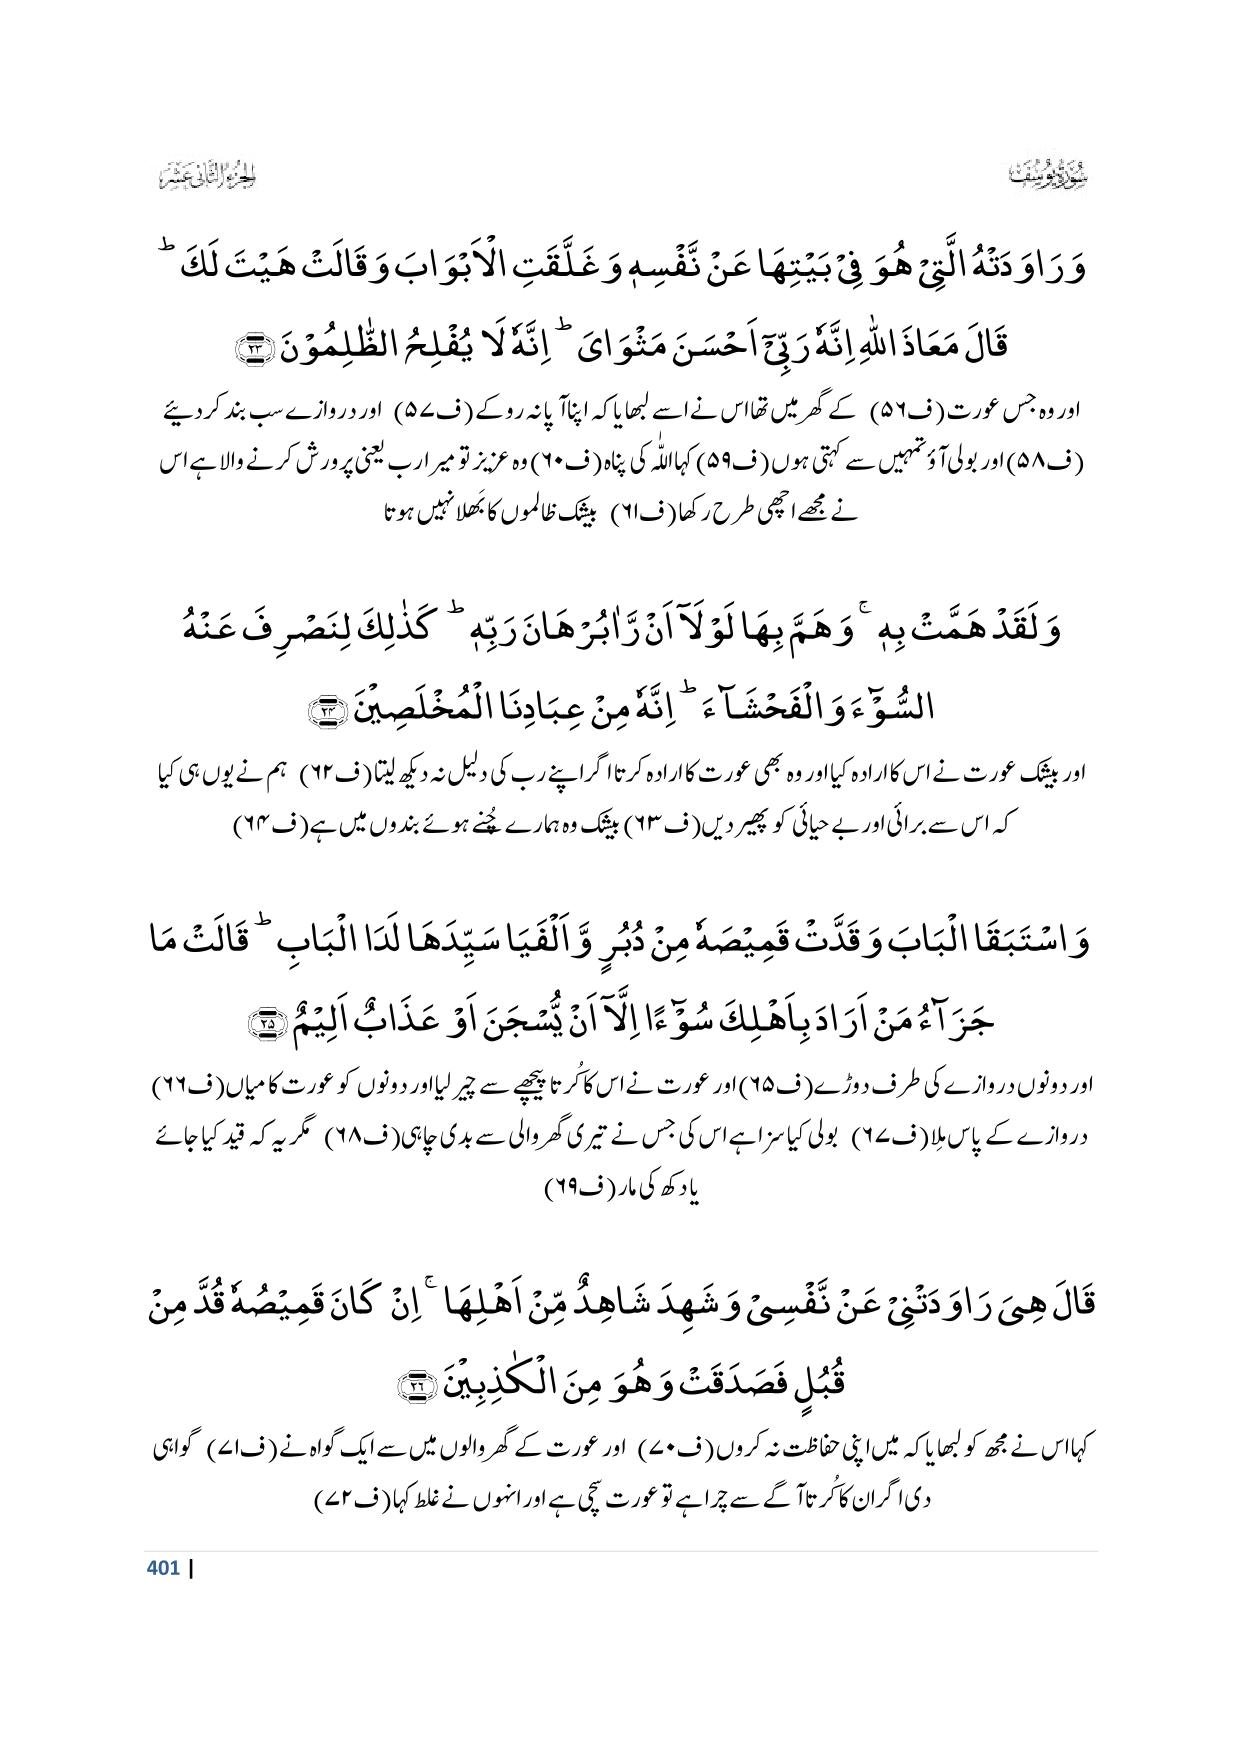 سورة يوسف
الجزء الثاني عشر
وَ رَاوَدَتْهُ الَّتِیْ هُوَ فِیْ بَیْتِهَا عَنْ نَّفْسِهٖ وَ غَلَّقَتِ الْاَبْوَابَ وَ قَالَتْ هَیْتَ لَكَ ؕ
قَالَ مَعَاذَ اللّٰهِ اِنَّهٗ رَبِّیْۤ اَحْسَنَ مَثْوَایَ ؕ اِنَّهٗ لَا یُفْلِحُ الظّٰلِمُوْنَ ﴿۲۳﴾
اور وہ جس عورت (ف۵۶) کے گھر میں تھا اس نے اسے لبھایا کہ اپنا آپا نہ روکے (ف۵۷) اور دروازے سب بند کر دیئے
(ف۵۸) اور بولی آؤ تمہیں سے کہتی ہوں (ف۵۹) کہا اللہ کی پناہ (ف۶۰) وہ عزیز تو میرا رب یعنی پرورش کرنے والا ہے اس
نے مجھے اچھی طرح رکھا (ف۶۱) بیشک ظالموں کا بَھلا نہیں ہوتا
وَ لَقَدْ هَمَّتْ بِهٖ ۚ وَ هَمَّ بِهَا لَوْلَاۤ اَنْ رَّاٰ بُرْهَانَ رَبِّهٖ ؕ كَذٰلِكَ لِنَصْرِفَ عَنْهُ
السُّوْٓءَ وَ الْفَحْشَآءَ ؕ اِنَّهٗ مِنْ عِبَادِنَا الْمُخْلَصِیْنَ ﴿۲۴﴾
اور بیشک عورت نے اس کا ارادہ کیا اور وہ بھی عورت کا ارادہ کرتا اگر اپنے رب کی دلیل نہ دیکھ لیتا (ف۶۲) ہم نے یوں ہی کیا
کہ اس سے برائی اور بے حیائی کو پھیر دیں (ف۶۳) بیشک وہ ہمارے چُنے ہوئے بندوں میں ہے (ف۶۴)
وَ اسْتَبَقَا الْبَابَ وَ قَدَّتْ قَمِیْصَهٗ مِنْ دُبُرٍ وَّ اَلْفَیَا سَیِّدَهَا لَدَا الْبَابِ ؕ قَالَتْ مَا
جَزَآءُ مَنْ اَرَادَ بِاَهْلِكَ سُوْٓءًا اِلَّاۤ اَنْ یُّسْجَنَ اَوْ عَذَابٌ اَلِیْمٌ ﴿۲۵﴾
اور دونوں دروازے کی طرف دوڑے (ف۶۵) اور عورت نے اس کا کُرتا پیچھے سے چیر لیا اور دونوں کو عورت کا میاں (ف۶۶)
دروازے کے پاس مِلا (ف۶۷) بولی کیا سزا ہے اس کی جس نے تیری گھر والی سے بدی چاہی (ف۶۸) مگر یہ کہ قید کیا جائے
یا دکھ کی مار (ف۶۹)
قَالَ هِیَ رَاوَدَتْنِیْ عَنْ نَّفْسِیْ وَ شَهِدَ شَاهِدٌ مِّنْ اَهْلِهَا ۚ اِنْ كَانَ قَمِیْصُهٗ قُدَّ مِنْ
قُبُلٍ فَصَدَقَتْ وَ هُوَ مِنَ الْكٰذِبِیْنَ ﴿۲۶﴾
کہا اس نے مجھ کو لبھایا کہ میں اپنی حفاظت نہ کروں (ف۷۰) اور عورت کے گھر والوں میں سے ایک گواہ نے (ف۷۱) گواہی
دی اگر ان کا کُرتا آگے سے چرا ہے تو عورت سچی ہے اور انہوں نے غلط کہا (ف۷۲)
401 |